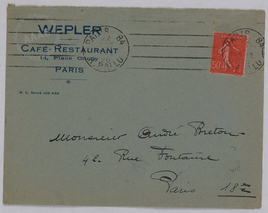 WEPLER
CAFÉ-RESTAURANT
14, Place Clichy
PARIS
PARIS 84
BALLU
50
Monsieur André Breton
42 Rue Fontaine
Paris
18